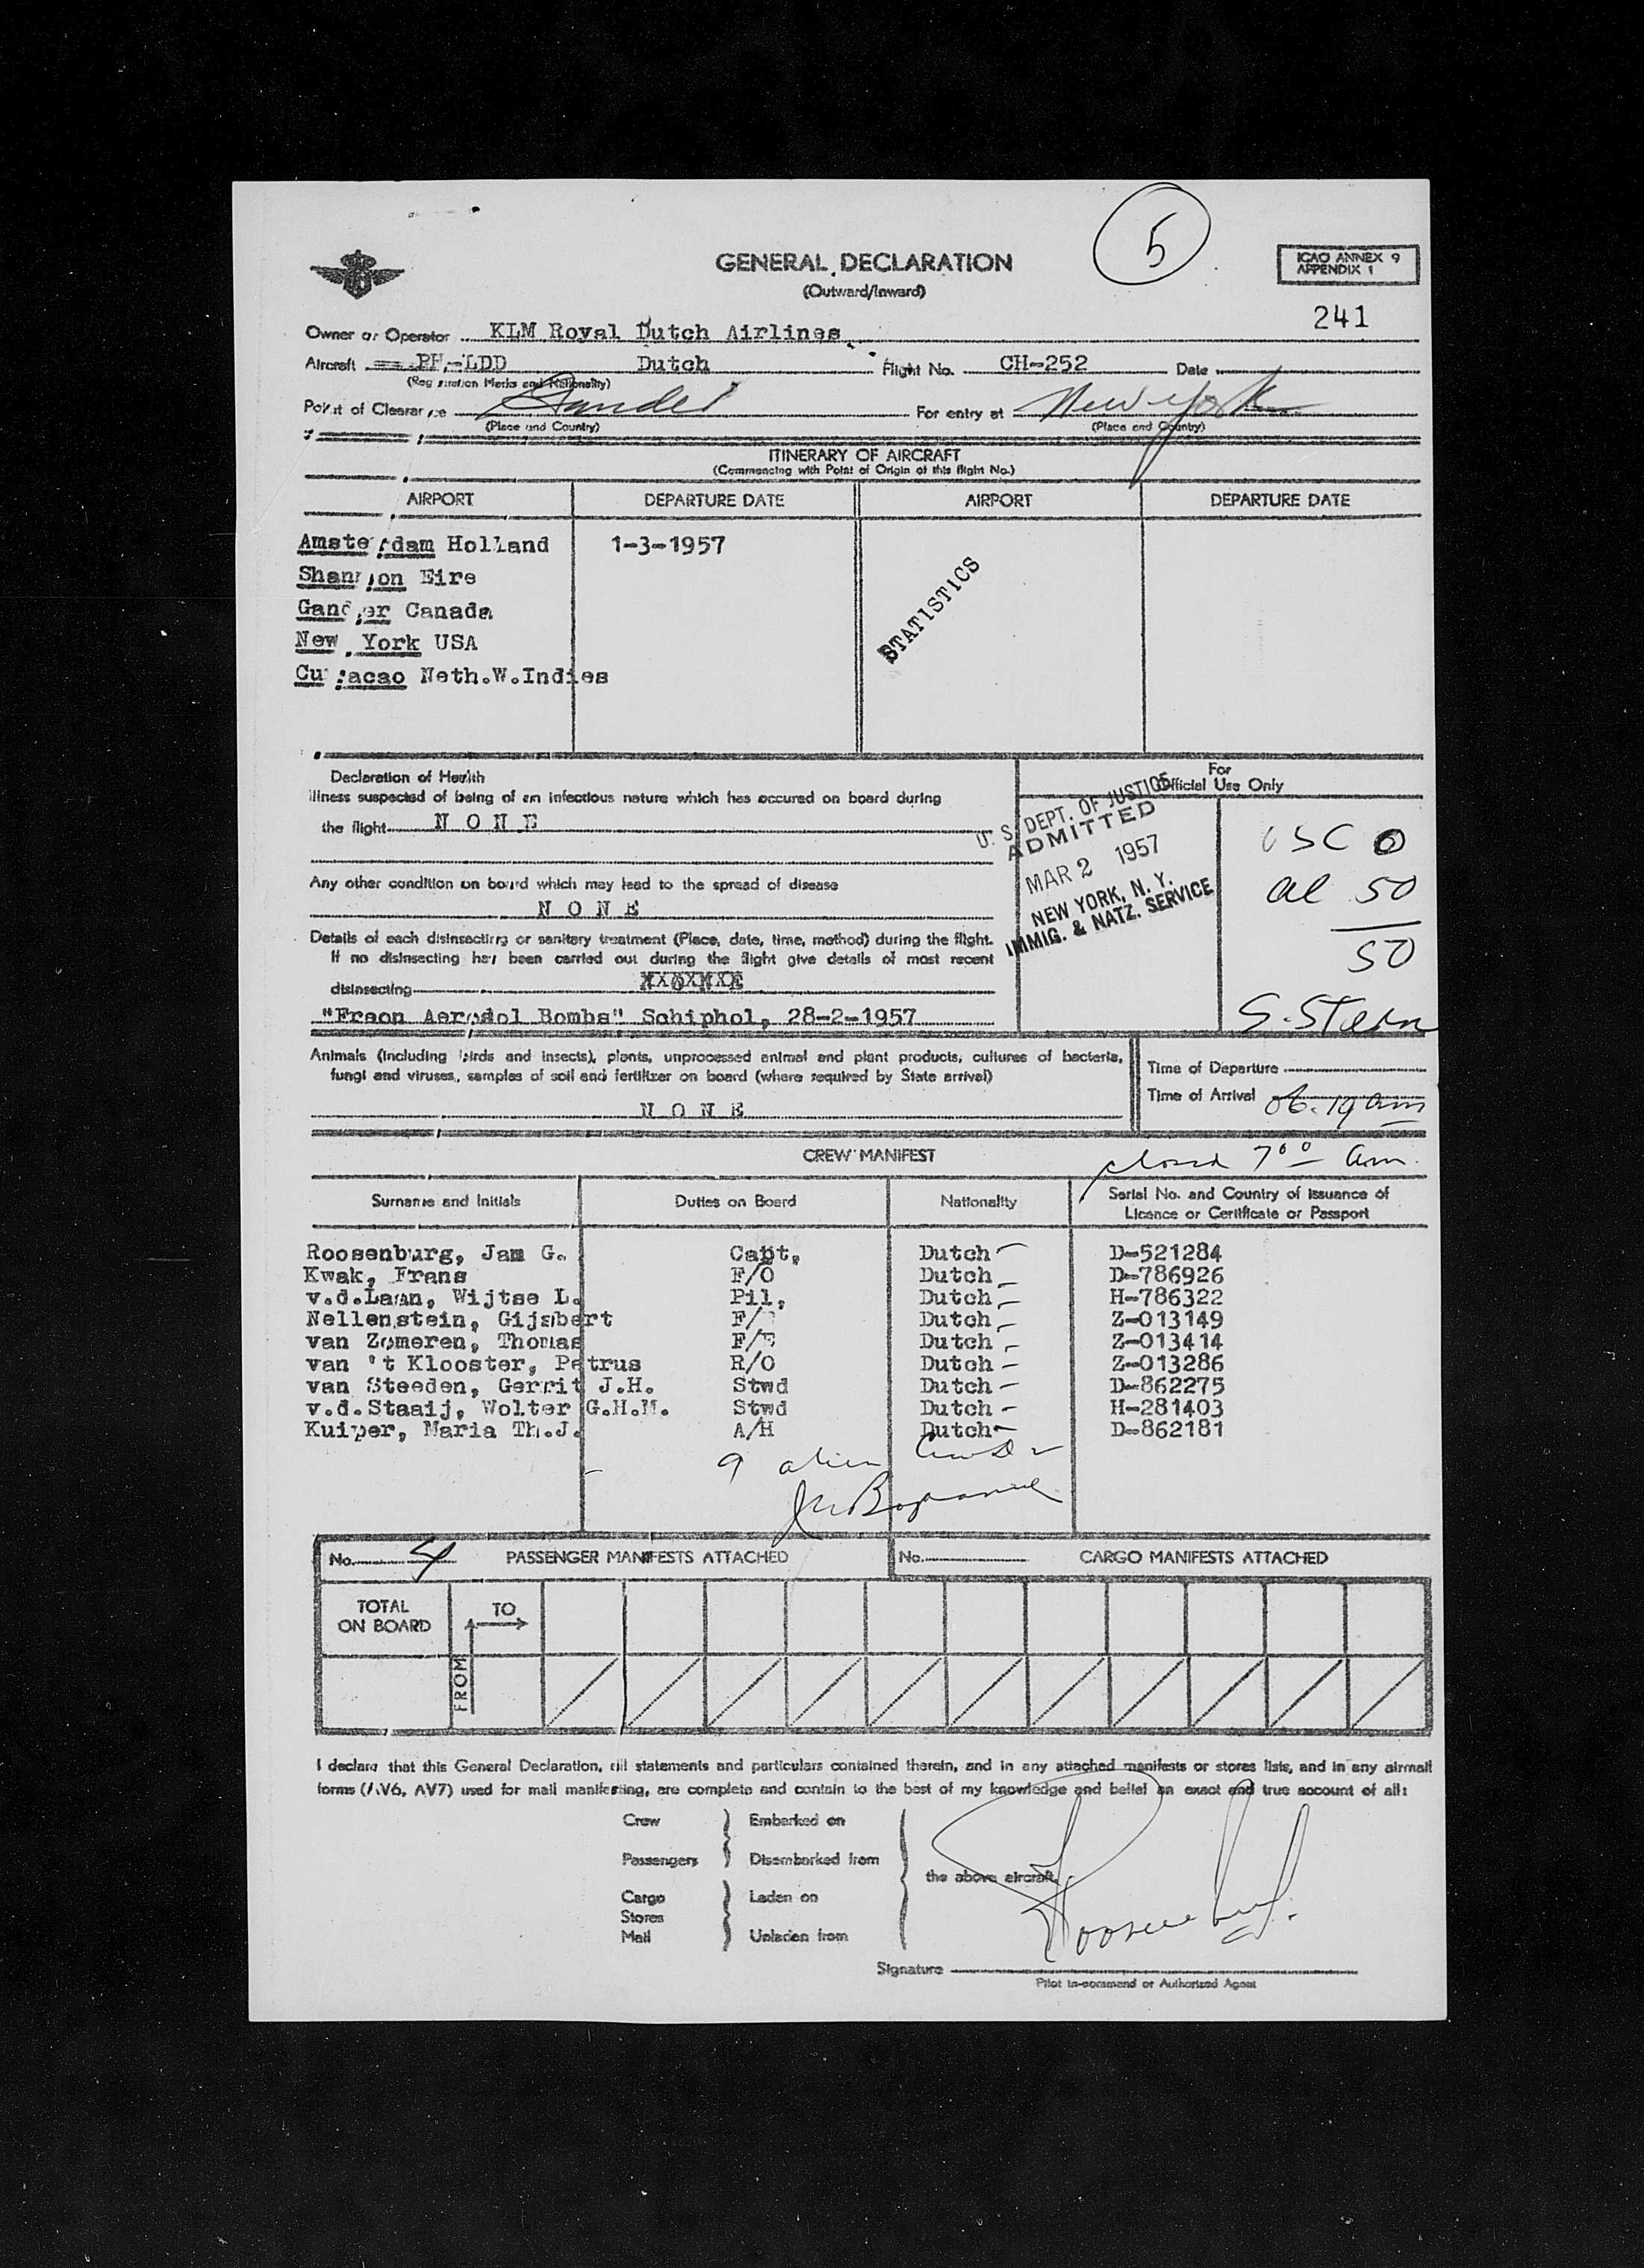 5
GENERAL DECLARATION
(Outward/Inward)
ICAO ANNEX 9
APPENDIX 1
241
Owner or Operator KLM Royal Dutch Airlines
Aircraft PH-LDD Dutch Flight No. CH-252 Date
(Registration Marks and Nationality)
Point of Clearance Gander For entry at New York
(Place and Country) (Place and Country)
ITINERARY OF AIRCRAFT
(Commencing with Point of Origin of this flight No.)
AIRPORT DEPARTURE DATE AIRPORT DEPARTURE DATE
Amsterdam Holland 1-3-1957
Shannon Eire
Gander Canada
New York USA
Curacao Neth.W.Indies
STATISTICS
Declaration of Health
Illness suspected of being of an infectious nature which has occured on board during
the flight N O N E
Any other condition on board which may lead to the spread of disease
N O N E
Details of each disinsecting or sanitary treatment (Place, date, time, method) during the flight.
If no disinsecting has been carried out during the flight give details of most recent
disinsecting
"Freon Aerosol Bombs" Schiphol, 28-2-1957
For
Official Use Only
U. S. DEPT. OF JUSTICE
ADMITTED
MAR 2 1957
NEW YORK, N. Y.
IMMIG. & NATZ. SERVICE
USC 0
al 50
50
S. Stern
Animals (including birds and insects), plants, unprocessed animal and plant products, cultures of bacteria,
fungi and viruses, samples of soil and fertilizer on board (where required by State arrival)
N O N E
Time of Departure
Time of Arrival 06.19 am
CREW MANIFEST
closed 7 00 am.
Surname and Initials Duties on Board Nationality Serial No. and Country of Issuance of
Licence or Certificate or Passport
Roosenburg, Jam G. Capt, Dutch D-521284
Kwak, Frans F/O Dutch D-786926
v.d.Laan, Wijtse L. Pil, Dutch H-786322
Nellenstein, Gijsbert F/ Dutch Z-013149
van Zomeren, Thomas F/E Dutch Z-013414
van 't Klooster, Petrus R/O Dutch Z-013286
van Steeden, Gerrit J.H. Stwd Dutch D-862275
v.d.Staaij, Wolter G.H.M. Stwd Dutch H-281403
Kuiper, Maria Th.J. A/H Dutch D-862181
9 alien
No. 4 PASSENGER MANIFESTS ATTACHED No. CARGO MANIFESTS ATTACHED
TOTAL
ON BOARD
TO
FROM
I declare that this General Declaration, all statements and particulars contained therein, and in any attached manifests or stores lists, and in any airmail
forms (AV6, AV7) used for mail manifesting, are complete and contain to the best of my knowledge and belief an exact and true account of all:
Crew Embarked on
Passengers Disembarked from
the above aircraft.
Cargo Laden on
Stores
Mail Unladen from
Roosenburg.
Signature
Pilot in-command or Authorized Agent